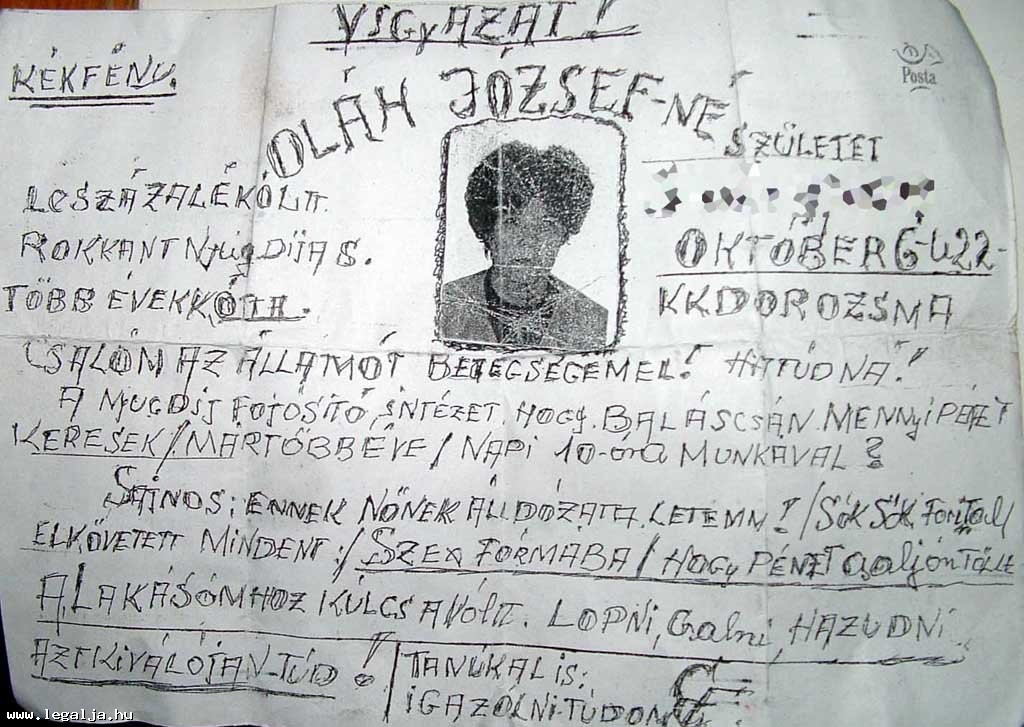 VIGYÁZAT!
KÉKFÉNY.
Posta
OLÁH JÓZSEF-NÉ
SZÜLETET
LESZÁZALÉKÓLTT.
ROKKANT NyugDíJAS.
TÖBB ÉVEKKÓTA.
OKTÓBER 6-U22-
KKDOROZSMA
CSALÓM AZ ÁLLÁMOT BETEGSÉGEMEL! HATTÚDNA!
A NyUGDÍJ FOJÓSÍTÓ, INTÉZET, HOGY. BALÁSCSÁN. MENNyi PÉZT
KERESEK/MÁRTÖBBÉVE/NAPI 10-óra MUNKÁVAL?
SAJNOS; ENNEK NŐNEK ÁLLDÓZATA. LETEMM!/SÓK SÓK Forítal/
ELKÖVETETT MINDENT:/SZEX FÓRMÁBA/HOGY PÉNZT csaljón TŐLLE
A LAKÁSÓMHOZ KÚLCSAVÓLTT. LOPNI, Csalni, HAZUDNI
AZT KIVÁLÓJAN-TÚD!
TANÚKAL IS;
iGAZÓLNI-TÚDOM
www.legalja.hu